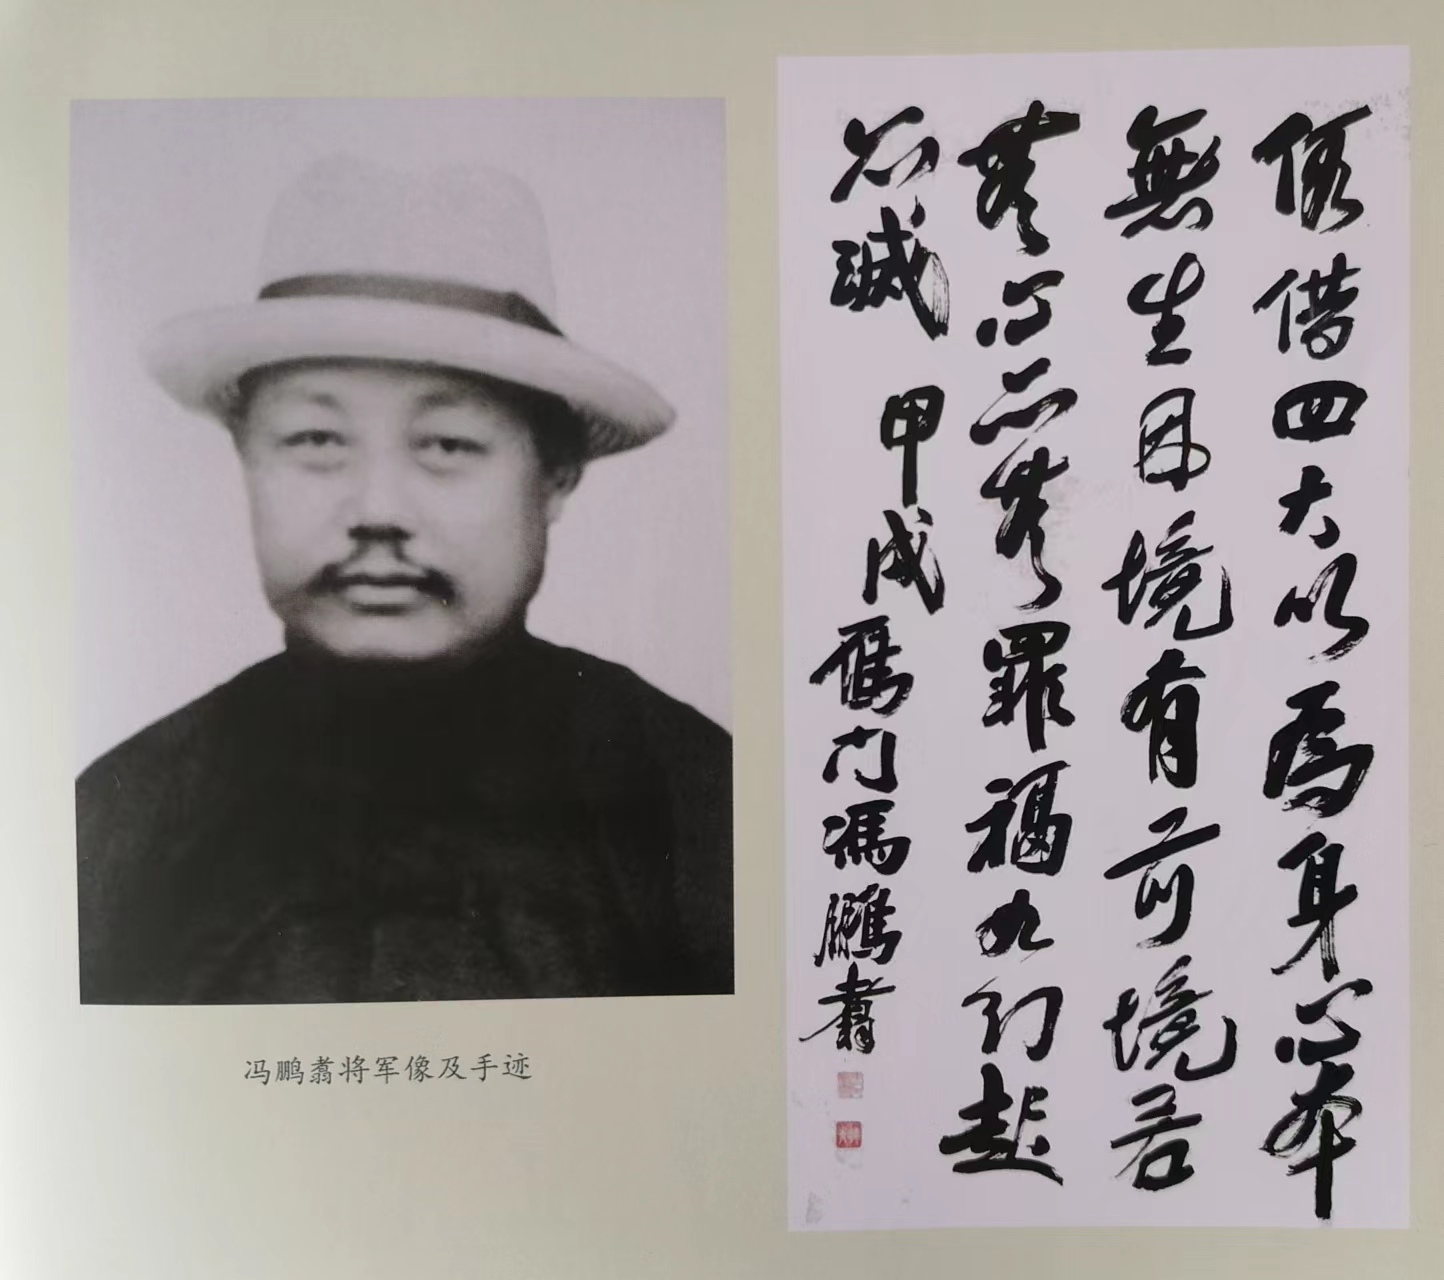 冯鹏翥将军像及手迹
假借四大以為身心本
無生因境有前境若
無心亦無罪福如幻起
亦滅 甲戌 雁門馮鵬翥